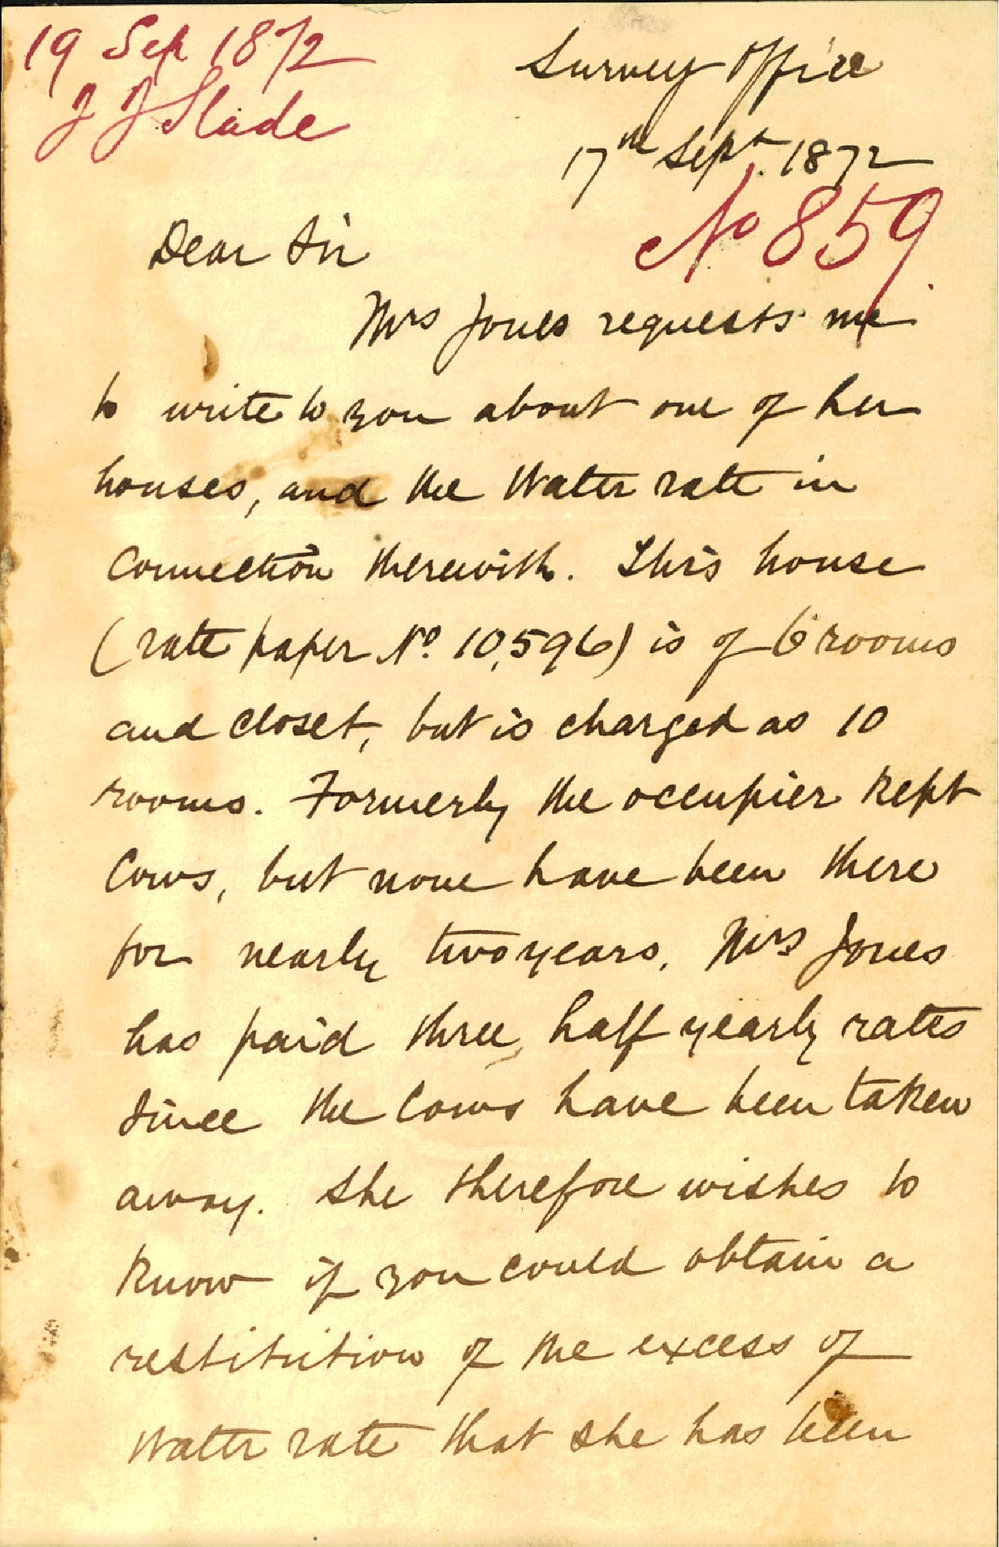 19 Sep 1872
J J Slade
Survey Office
17th Sept. 1872
No 859
Dear Sir
Mrs Jones requests me
to write to you about one of her
houses, and the Water rate in
connection therewith. This house
(rate paper No. 10,596) is of 6 rooms
and closet, but is charged as 10
rooms. Formerly the occupier kept
Cows, but none have been there
for nearly two years. Mrs Jones
has paid three, half yearly rates
since the Cows have been taken
away. She therefore wishes to
know if you could obtain a
restitution of the excess of
Water rate that she has been